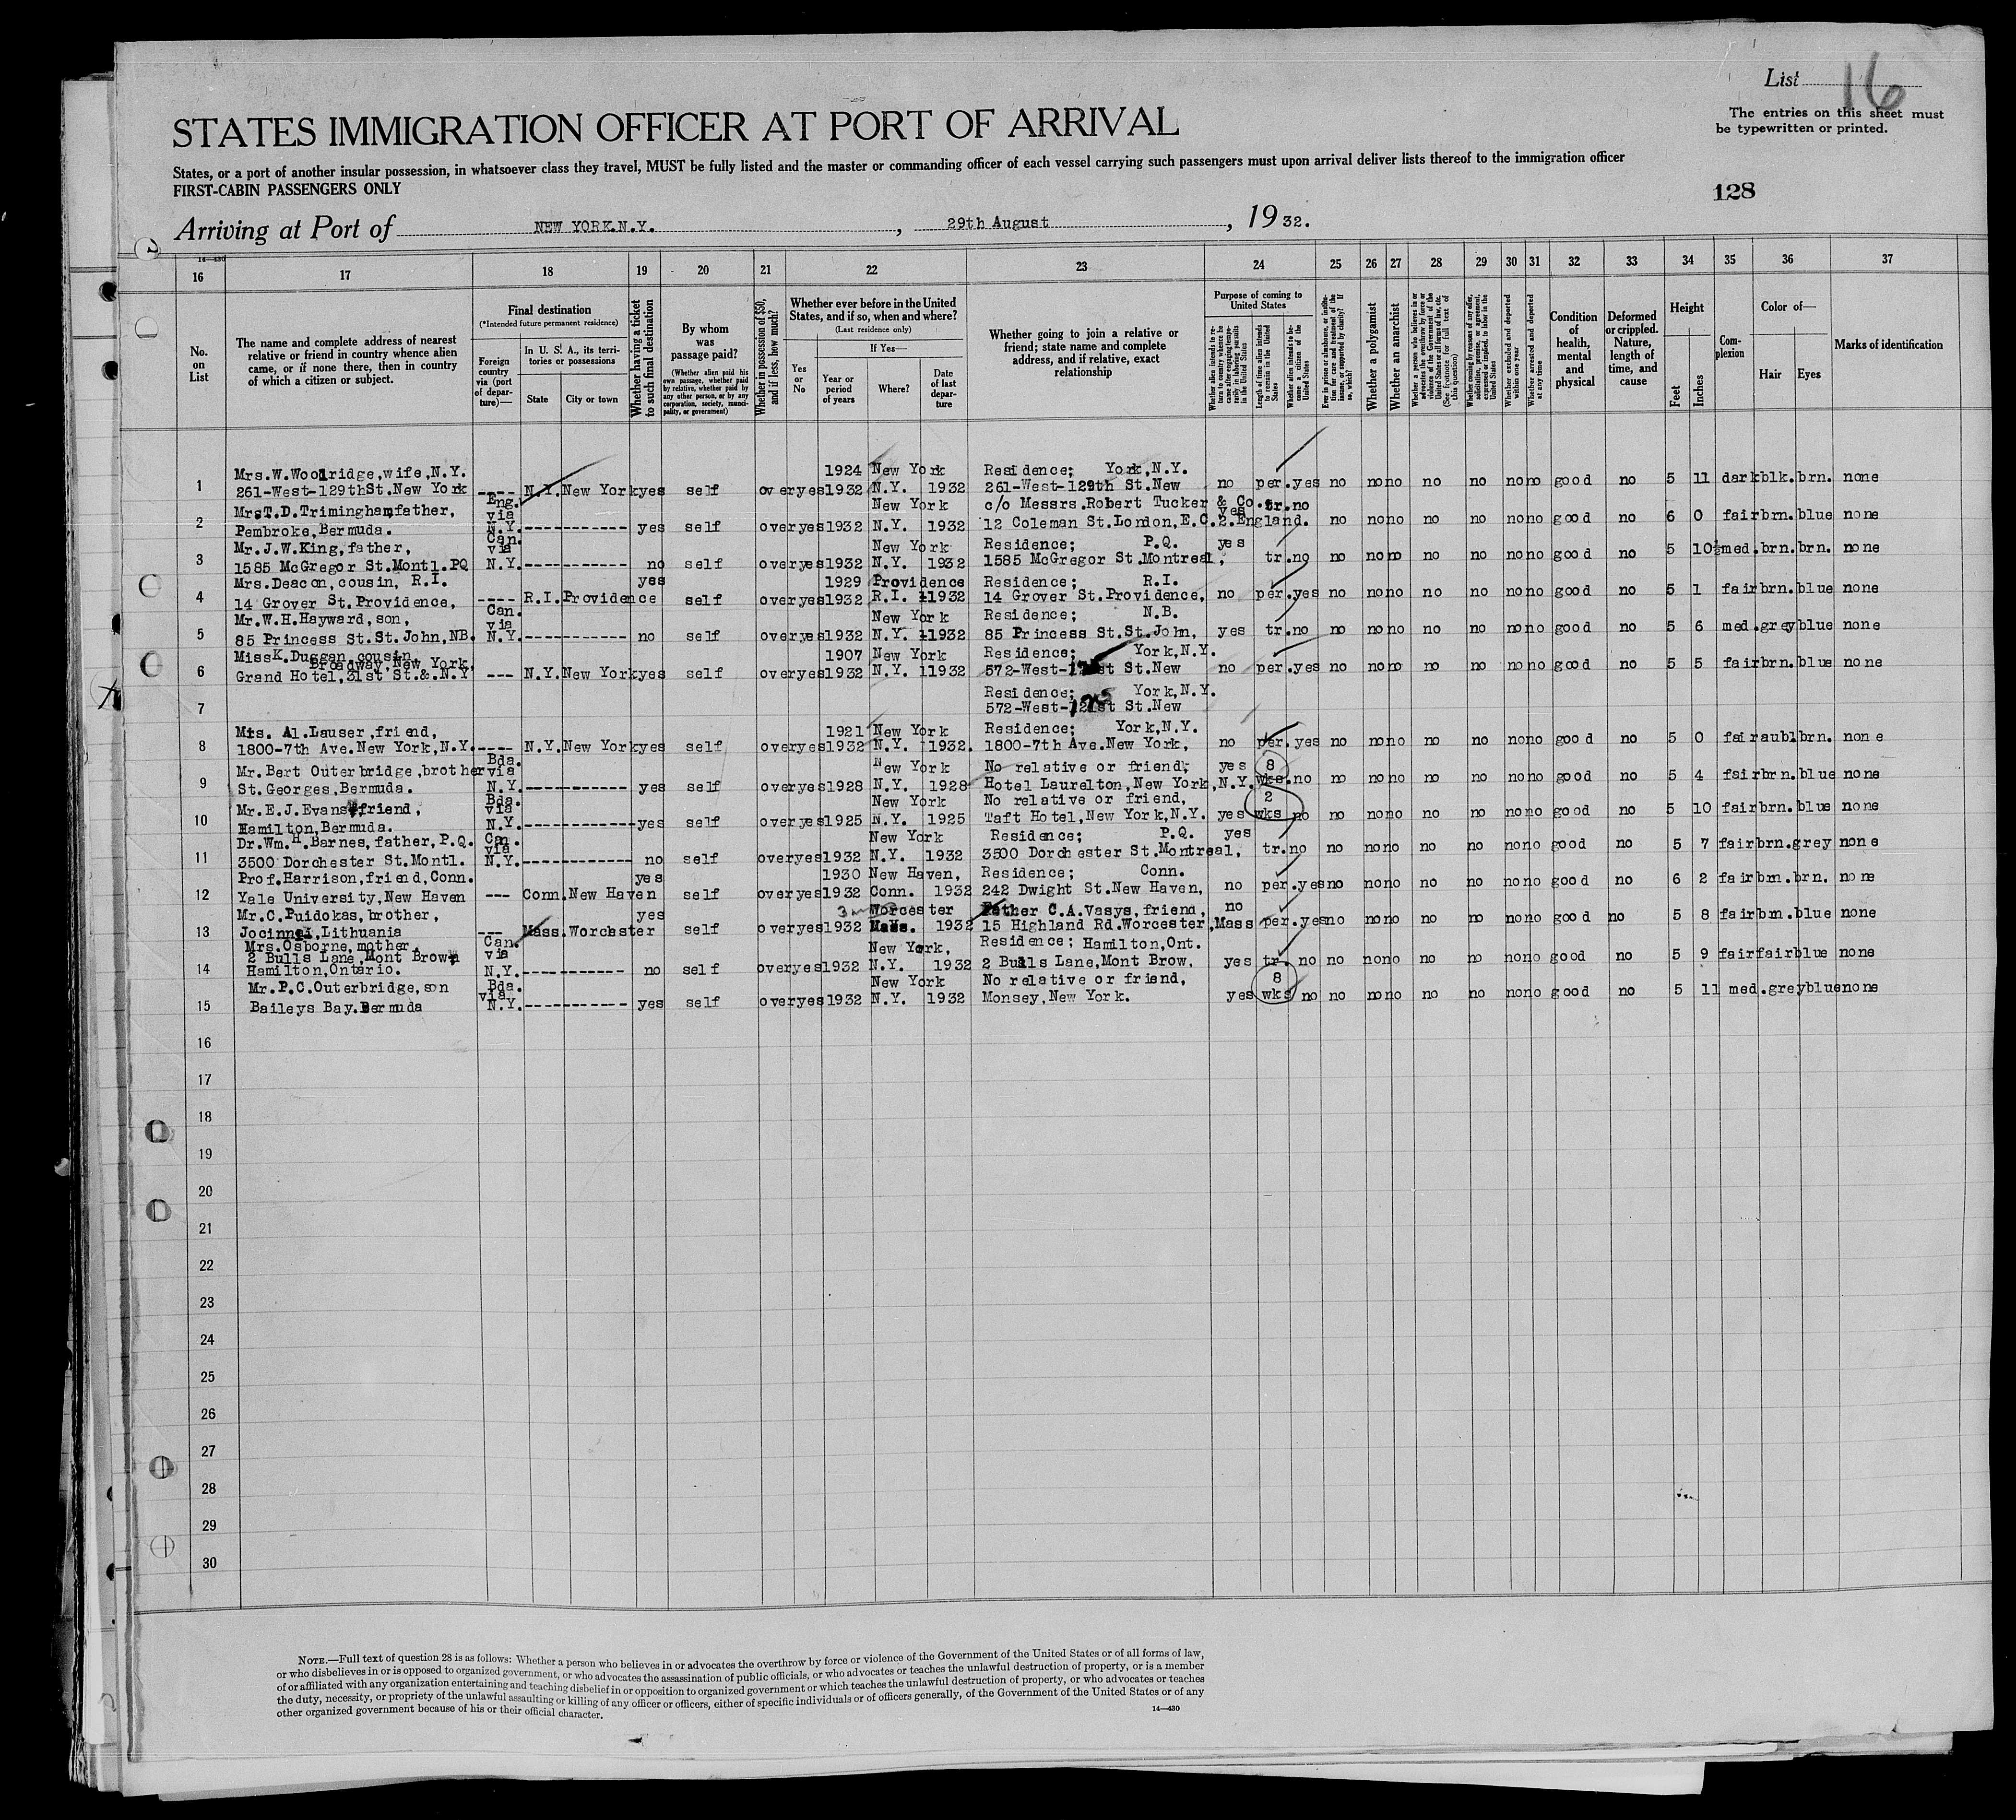 List 16
The entries on this sheet must
be typewritten or printed.
STATES IMMIGRATION OFFICER AT PORT OF ARRIVAL
States, or a port of another insular possession, in whatsoever class they travel, MUST be fully listed and the master or commanding officer of each vessel carrying such passengers must upon arrival deliver lists thereof to the immigration officer
FIRST-CABIN PASSENGERS ONLY
128
Arriving at Port of NEW YORK.N.Y., 29th August, 1932.
14—430
16 17 18 19 20 21 22 23 24 25 26 27 28 29 30 31 32 33 34 35 36 37
No. on List
The name and complete address of nearest
relative or friend in country whence alien
came, or if none there, then in country
of which a citizen or subject.
Final destination
(*Intended future permanent residence)
Foreign country via (port of departure)—
In U. S. A., its territories or possessions
State
City or town
Whether having a ticket to such final destination
By whom was passage paid?
(Whether alien paid his own passage, whether paid by relative, whether paid by any other person, or by any corporation, society, municipality, or government)
Whether in possession of $50, and if less, how much?
Whether ever before in the United States, and if so, when and where?
(Last residence only)
Yes or No
If Yes—
Year or period of years
Where?
Date of last departure
Whether going to join a relative or
friend; state name and complete
address, and if relative, exact
relationship
Purpose of coming to United States
Whether alien intends to return to country whence he came after engaging temporarily in laboring pursuits in the United States
Length of time alien intends to remain in the United States
Whether alien intends to become a citizen of the United States
Ever in prison or almshouse, or institution for care and treatment of the insane, or supported by charity? If so, which?
Whether a polygamist
Whether an anarchist
Whether a person who believes in or advocates the overthrow by force or violence of the Government of the United States or all forms of law, etc. (See footnote for full text of this question)
Whether coming by reasons of any offer, solicitation, promise, or agreement, expressed or implied, to labor in the United States
Whether excluded and deported within one year
Whether arrested and deported at any time
Condition of health, mental and physical
Deformed or crippled. Nature, length of time, and cause
Height
Feet
Inches
Complexion
Color of—
Hair
Eyes
Marks of identification
Mrs.W.Woolridge,wife,N.Y. 1924 New York Residence; York,N.Y.
1 261-West-129thSt.New York ---- N.Y. New York yes self over yes 1932 N.Y. 1932 261-West-129th St.New no per. yes no no no no no no no good no 5 11 dark blk. brn. none
Mrs T.D.Trimingham,father, Eng. via New York c/o Messrs.Robert Tucker & Co. yes tr. no
2 Pembroke,Bermuda. N.Y. ------------ yes self over yes 1932 N.Y. 1932 12 Coleman St.London,E.C.2.England. no no no no no no no good no 6 0 fair brn. blue none
Mr.J.W.King,father, Can. via New York Residence; P.Q. yes
3 1585 McGregor St.Montl.PQ N.Y. ------------ no self over yes 1932 N.Y. 1932 1585 McGregor St.Montreal, tr. no no no no no no no no good no 5 10½ med. brn. brn. none
Mrs.Deacon,cousin, R.I. yes 1929 Providence Residence; R.I.
4 14 Grover St.Providence, ---- R.I. Providence self over yes 1932 R.I. 1932 14 Grover St.Providence, no per. yes no no no no no no no good no 5 1 fair brn. blue none
Mr.W.H.Hayward,son, Can. via New York Residence; N.B.
5 85 Princess St.St.John,NB. N.Y. ------------ no self over yes 1932 N.Y. 1932 85 Princess St.St.John, yes tr. no no no no no no no no good no 5 6 med. grey blue none
Miss K.Duggan,cousin, 1907 New York Residence; York,N.Y.
Broadway,New York,
6 Grand Hotel,31st St.&.N.Y --- N.Y. New York yes self over yes 1932 N.Y. 1932 572-West-121st St.New no per. yes no no no no no no no good no 5 5 fair brn. blue none
Residence; York,N.Y.
7 572-West-121st St.New
Mrs. Al.Lauser,friend, 1921 New York Residence; York,N.Y.
8 1800-7th Ave.New York,N.Y. ---- N.Y. New York yes self over yes 1932 N.Y. 1932. 1800-7th Ave.New York, no per. yes no no no no no no no good no 5 0 fair aubl brn. none
Mr.Bert Outerbridge,brother Bda. via New York No relative or friend, yes 8
9 St.Georges,Bermuda. N.Y. ------------ yes self over yes 1928 N.Y. 1928 Hotel Laurelton,New York,N.Y. wks. no no no no no no no no good no 5 4 fair brn. blue none
Mr.E.J.Evans friend, Bda. via New York No relative or friend, 2
10 Hamilton,Bermuda. N.Y. ------------ yes self over yes 1925 N.Y. 1925 Taft Hotel,New York,N.Y. yes wks no no no no no no no no good no 5 10 fair brn. blue none
Dr.Wm.H.Barnes,father,P.Q. Can. via New York Residence; P.Q. yes
11 3500 Dorchester St.Montl. N.Y. ------------ no self over yes 1932 N.Y. 1932 3500 Dorchester St.Montreal, tr. no no no no no no no no good no 5 7 fair brn. grey none
Prof.Harrison,friend,Conn. yes 1930 New Haven, Residence; Conn.
12 Yale University,New Haven --- Conn. New Haven self over yes 1932 Conn. 1932 242 Dwight St.New Haven, no per. yes no no no no no no no good no 6 2 fair brn. brn. none
Mr.C.Puidokas,brother, yes Worcester Father C.A.Vasys,friend, no
13 Jocinnei,Lithuania --- Mass. Worchster self over yes 1932 Mass. 1932 15 Highland Rd.Worcester,Mass per. yes no no no no no no no good no 5 8 fair brn. blue none
Mrs.Osborne,mother, Can. via New York, Residence; Hamilton,Ont.
2 Bulls Lane,Mont Brown
14 Hamilton,Ontario. N.Y. ------------ no self over yes 1932 N.Y. 1932 2 Bulls Lane,Mont Brow, yes tr. no no no no no no no no good no 5 9 fair fair blue none
Mr.P.C.Outerbridge,son Bda. via New York No relative or friend, 8
15 Baileys Bay.Bermuda N.Y. ------------ yes self over yes 1932 N.Y. 1932 Monsey,New York. yes wks no no no no no no no no good no 5 11 med. grey blue none
16
17
18
19
20
21
22
23
24
25
26
27
28
29
30
NOTE.—Full text of question 28 is as follows: Whether a person who believes in or advocates the overthrow by force or violence of the Government of the United States or of all forms of law,
or who disbelieves in or is opposed to organized government, or who advocates the assassination of public officials, or who advocates or teaches the unlawful destruction of property, or is a member
of or affiliated with any organization entertaining and teaching disbelief in or opposition to organized government or which teaches the unlawful destruction of property, or who advocates or teaches
the duty, necessity, or propriety of the unlawful assaulting or killing of any officer or officers, either of specific individuals or of officers generally, of the Government of the United States or of any
other organized government because of his or their official character.
14—430